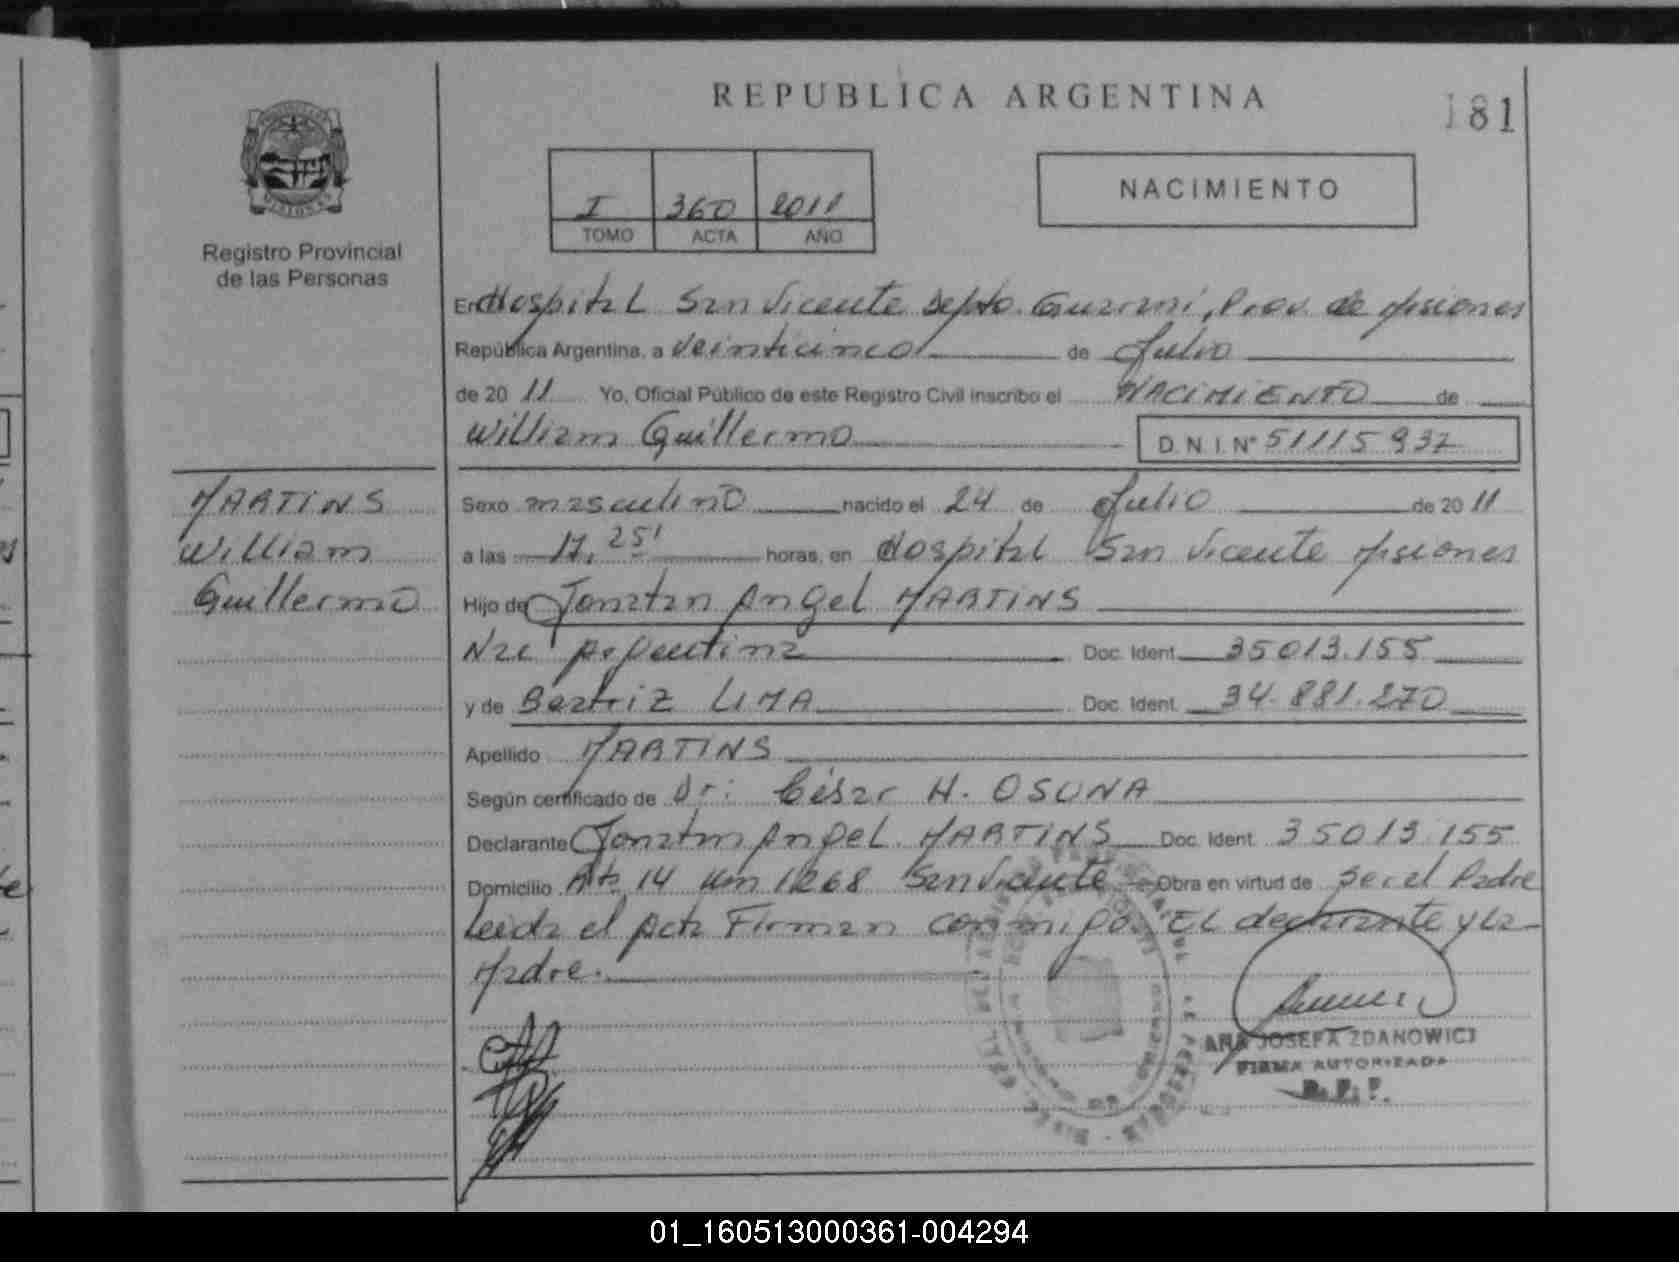 REPUBLICA ARGENTINA
181
MISIONES
Registro Provincial
de las Personas
I 360 2011
TOMO ACTA AÑO
NACIMIENTO
En Hospital San Vicente Depto. Guaraní, Prov. de Misiones
República Argentina, a veinticinco de Julio
de 20 11 Yo, Oficial Público de este Registro Civil inscribo el NACIMIENTO de
William Guillermo D.N.I. Nº 51115932
MARTINS
William
Guillermo
Sexo masculino nacido el 24 de Julio de 20 11
a las 17,25' horas, en Hospital San Vicente Misiones
Hijo de Jonatan Angel MARTINS
Nac Argentina Doc. Ident. 35013.155
y de Beatriz LIMA Doc. Ident. 34.881.270
Apellido MARTINS
Según certificado de Dr: César H. OSUNA
Declarante Jonatan Angel MARTINS Doc. Ident. 35013.155
Domicilio 14 Km 1268 San Vicente Obra en virtud de ser el Padre
Leida el Acta Firman conmigo. El declarante y la
Madre.
ANA JOSEFA ZDANOWICZ
FIRMA AUTORIZADA
R.P.P.
01_160513000361-004294